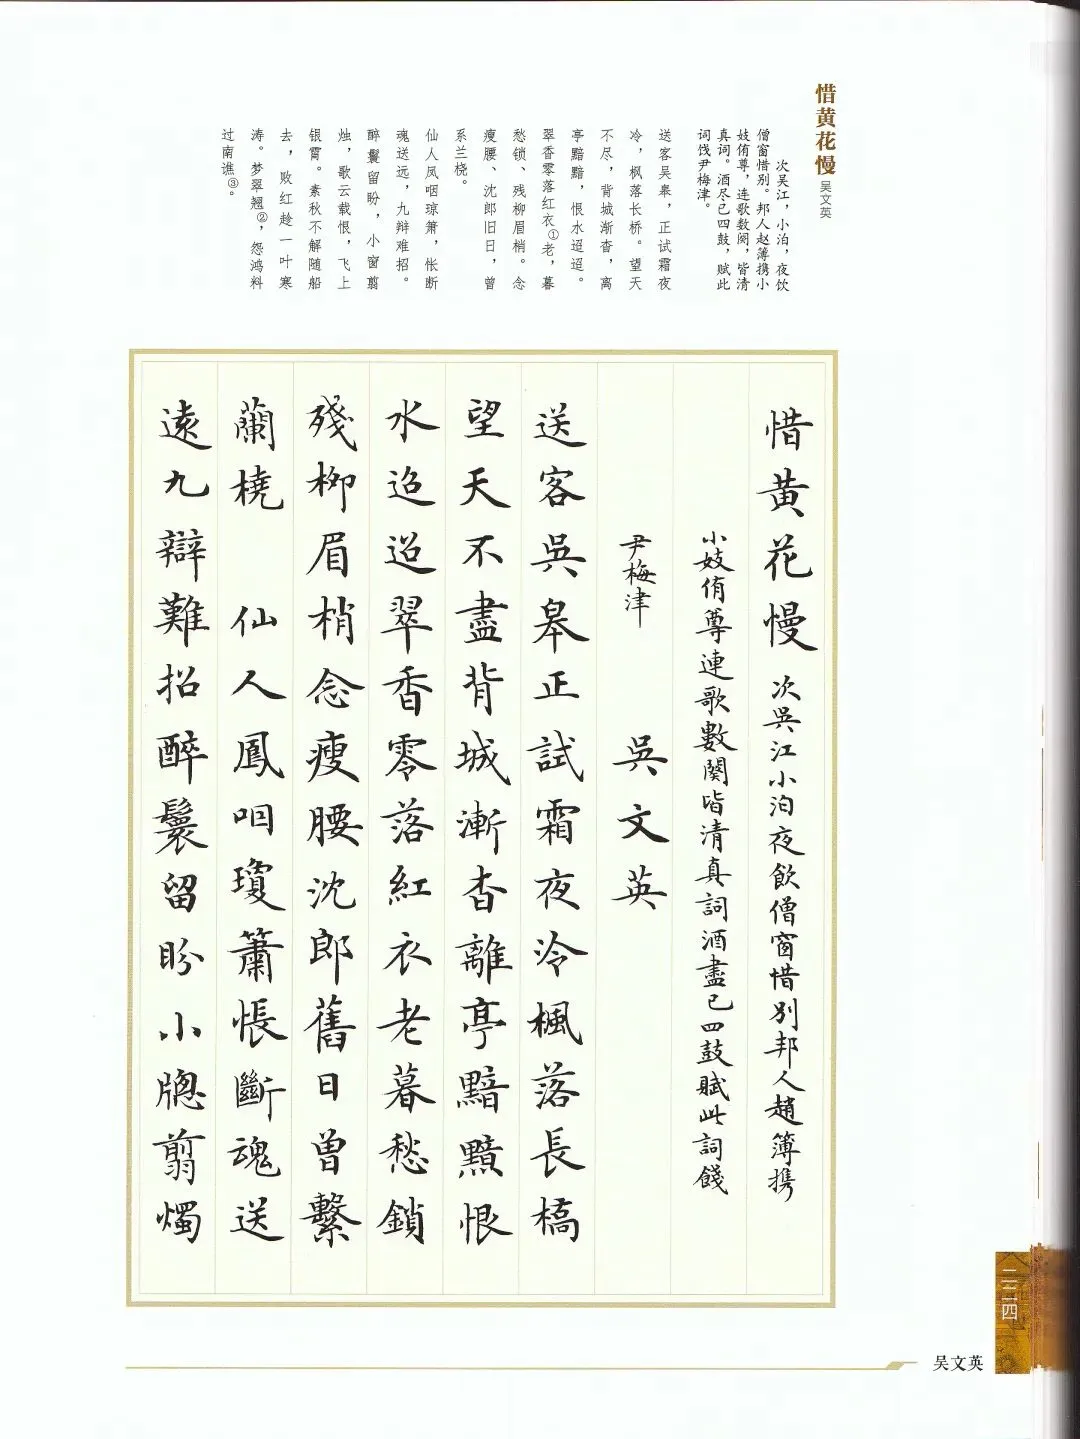 惜黄花慢 吴文英
次吴江，小泊，夜饮
僧窗惜别。邦人赵簿携小
妓侑尊，连歌数阕，皆清
真词。酒尽已四鼓，赋此
词饯尹梅津。
送客吴皋，正试霜夜
冷，枫落长桥。望天
不尽，背城渐杳，离
亭黯黯，恨水迢迢。
翠香零落红衣①老，暮
愁锁、残柳眉梢。念
瘦腰、沈郎旧日，曾
系兰桡。
仙人凤咽琼箫，怅断
魂送远，九辩难招。
醉鬟留盼，小窗剪
烛，歌云载恨，飞上
银霄。素秋不解随船
去，败红趁一叶寒
涛。梦翠翘②，怨鸿料
过南谯③。
惜黄花慢 次吳江小泊夜飲僧窗惜别邦人趙簿携
小妓侑尊連歌數闋皆清真詞酒盡已四鼓賦此詞餞
尹梅津 吳文英
送客吳皋正試霜夜泠楓落長橋
望天不盡背城漸杳離亭黯黯恨
水迢迢翠香零落紅衣老暮愁鎖
殘柳眉梢念瘦腰沈郎舊日曾繫
蘭橈 仙人鳳咽瓊簫悵斷魂送
遠九辯難招醉鬟留盼小牕翦燭
二二四
吴文英